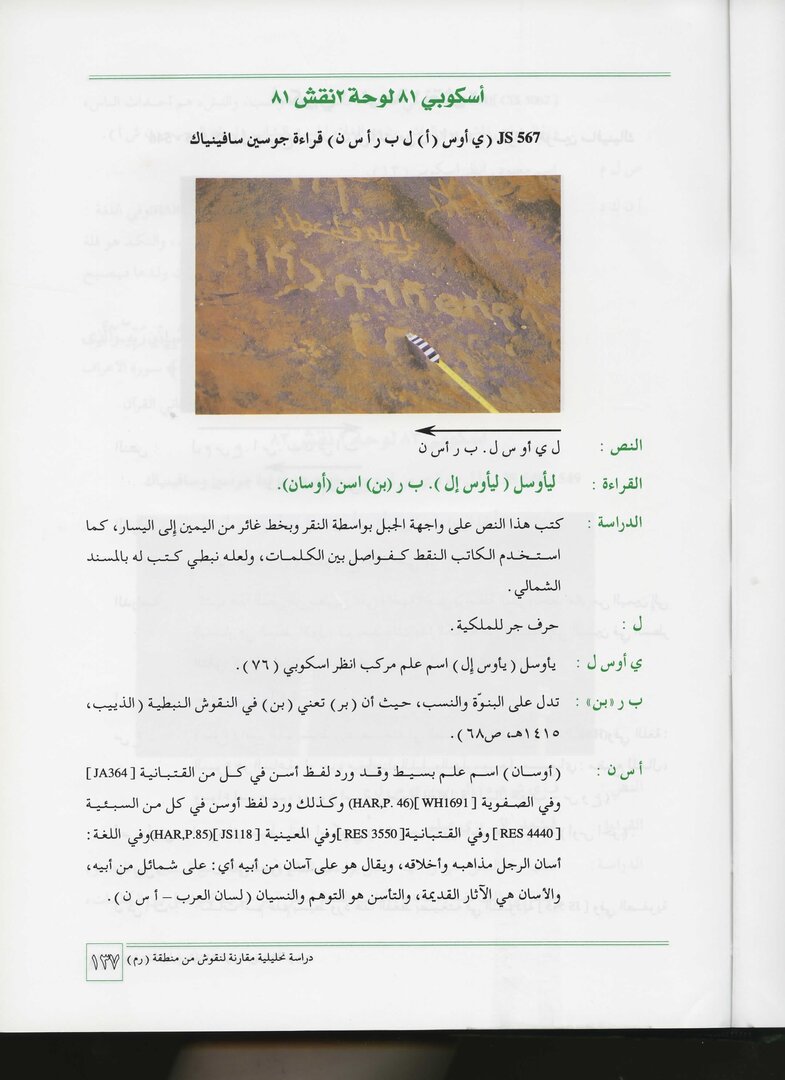 أسكوبي ٨١ لوحة ٢نقش ٨١
JS 567 (ي أوس (أ) ل ب ر أ س ن) قراءة جوسين سافينياك
النص : ل ي أو س ل . ب ر أس ن
القراءة : ليأوسل (ليأوس إل). ب ر (بن) اسن (أوسان).
الدراسة : كتب هذا النص على واجهة الجبل بواسطة النقر وبخط غائر من اليمين إلى اليسار، كما
استخدم الكاتب النقط كفواصل بين الكلمات، ولعله نبطي كتب له بالمسند
الشمالي.
ل : حرف جر للملكية.
ي أوس ل : يأوسل (يأوس إل) اسم علم مركب انظر اسكوبي (٧٦).
ب ر «بن» : تدل على البنوّة والنسب، حيث أن (بر) تعني (بن) في النقوش النبطية (الذييب،
١٤١٥هـ، ص٦٨).
أ س ن : (أوسان) اسم علم بسيط وقد ورد لفظ أسن في كل من القتبانية [JA364]
وفي الصفوية [WH1691 ](HAR,P. 46) وكذلك ورد لفظ أوسن في كل من السبئية
[RES 4440 ]وفي القتبانية[RES 3550 ]وفي المعينية [JS118 ](HAR,P.85)وفي اللغة:
أسان الرجل مذاهبه وأخلاقه، ويقال هو على آسان من أبيه أي: على شمائل من أبيه،
والأسان هي الآثار القديمة، والتأسن هو التوهم والنسيان (لسان العرب – أ س ن).
دراسة تحليلية مقارنة لنقوش من منطقة (رم) ١٣٧